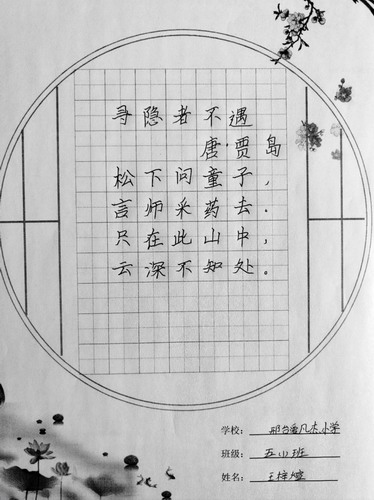 寻隐者不遇
唐·贾岛
松下问童子，
言师采药去。
只在此山中，
云深不知处。
学校：邢台 小学
班级：五 班
姓名：王梓